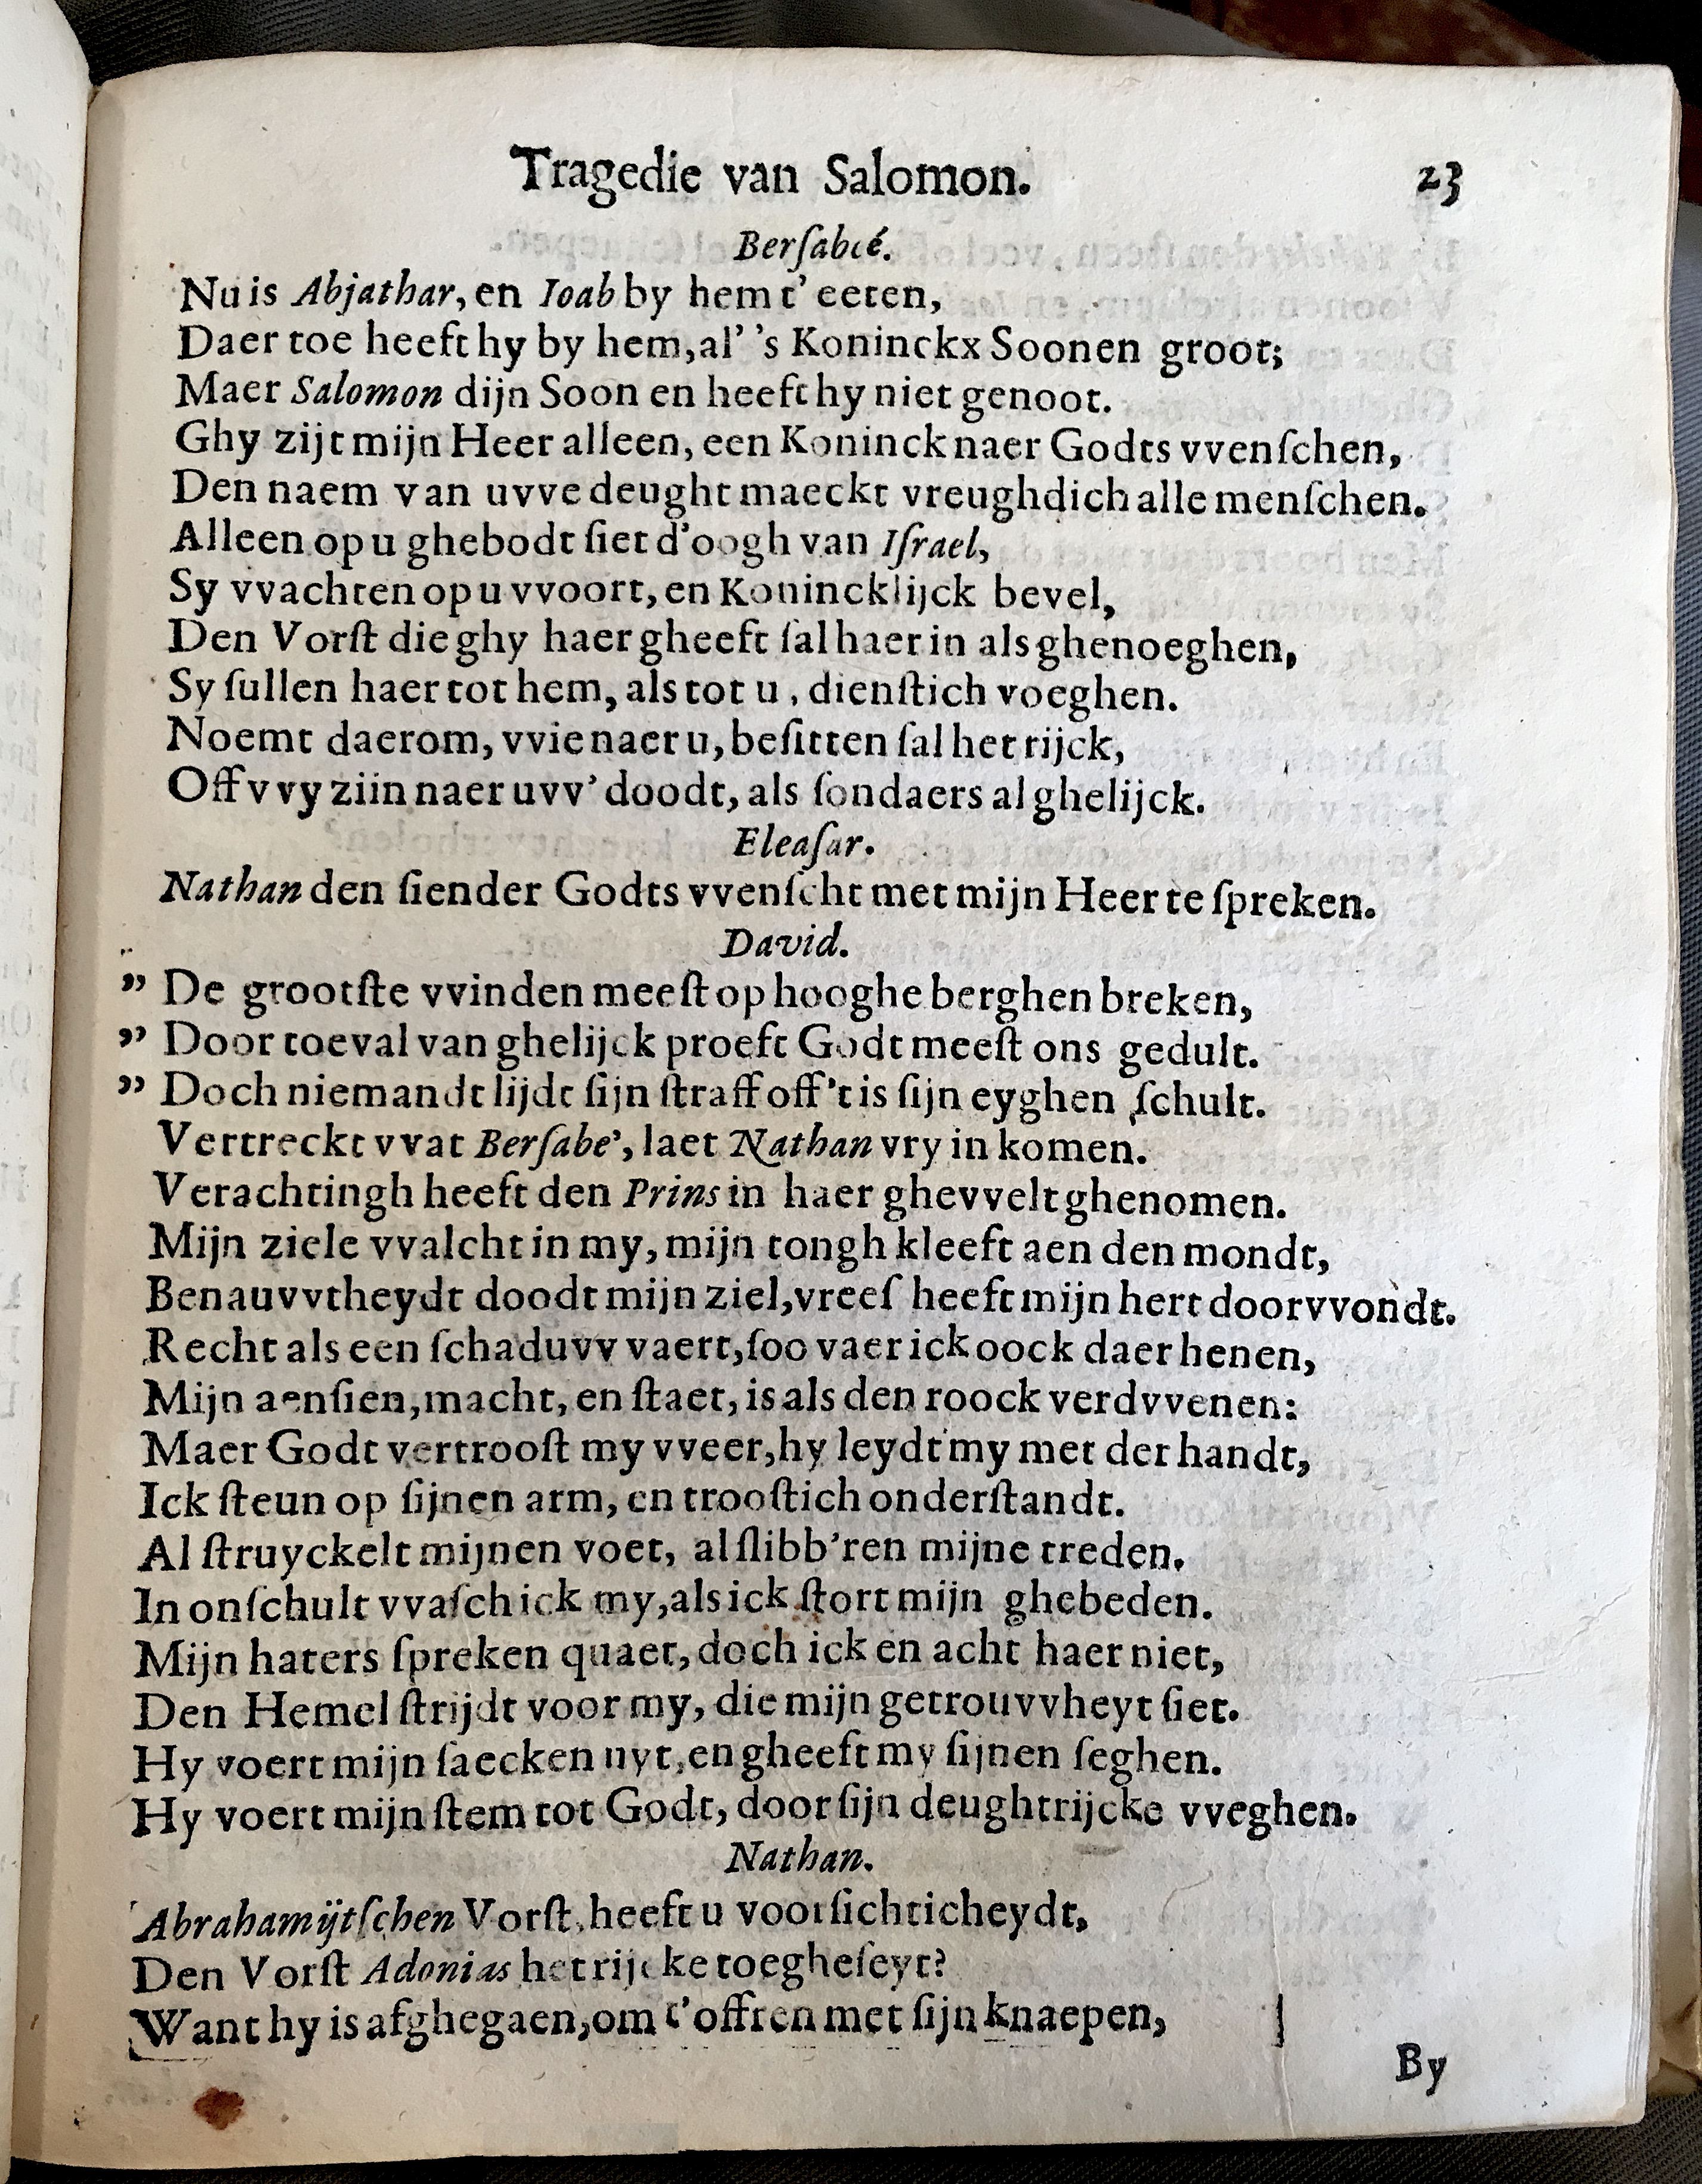 Tragedie van Salomon. 23
Berſabeé.
Nu is Abjathar, en Ioab by hem t' eeten,
Daer toe heeft hy by hem, al' 's Koninckx Soonen groot;
Maer Salomon dijn Soon en heeft hy niet genoot.
Ghy zijt mijn Heer alleen, een Koninck naer Godts vvenſchen,
Den naem van uvve deught maeckt vreughdich alle menſchen.
Alleen op u ghebodt ſiet d'oogh van Iſrael,
Sy vvachten op u vvoort, en Konincklijck bevel,
Den Vorſt die ghy haer gheeft ſal haer in als ghenoeghen,
Sy ſullen haer tot hem, als tot u, dienſtich voeghen.
Noemt daerom, vvie naer u, beſitten ſal het rijck,
Off vvy ziin naer uvv' doodt, als ſondaers al ghelijck.
Eleaſar.
Nathan den ſiender Godts vvenſcht met mijn Heer te ſpreken.
David.
” De grootſte vvinden meeſt op hooghe berghen breken,
” Door toeval van ghelijck proeft Godt meeſt ons gedult.
” Doch niemandt lijdt ſijn ſtraff off't is ſijn eyghen ſchult.
Vertreckt vvat Berſabe', laet Nathan vry in komen.
Verachtingh heeft den Prins in haer ghevvelt ghenomen.
Mijn ziele vvalcht in my, mijn tongh kleeft aen den mondt,
Benauvvtheydt doodt mijn ziel, vreeſ heeft mijn hert doorvvondt.
Recht als een ſchaduvv vaert, ſoo vaer ick oock daer henen,
Mijn aenſien, macht, en ſtaet, is als den roock verdvvenen:
Maer Godt vertrooſt my vveer, hy leydt my met der handt,
Ick ſteun op ſijnen arm, en trooſtich onderſtandt.
Al ſtruyckelt mijnen voet, al ſlibb'ren mijne treden,
In onſchult vvaſch ick my, als ick ſtort mijn ghebeden.
Mijn haters ſpreken quaet, doch ick en acht haer niet,
Den Hemel ſtrijdt voor my, die mijn getrouvvheyt ſiet.
Hy voert mijn ſaecken uyt, en gheeft my ſijnen ſeghen.
Hy voert mijn ſtem tot Godt, door ſijn deughtrijcke vveghen.
Nathan.
Abrahamijtſchen Vorſt, heeft u voorſichticheydt,
Den Vorſt Adonias het rijcke toegheſeyt?
Want hy is afghegaen, om t'offren met ſijn knaepen,
By